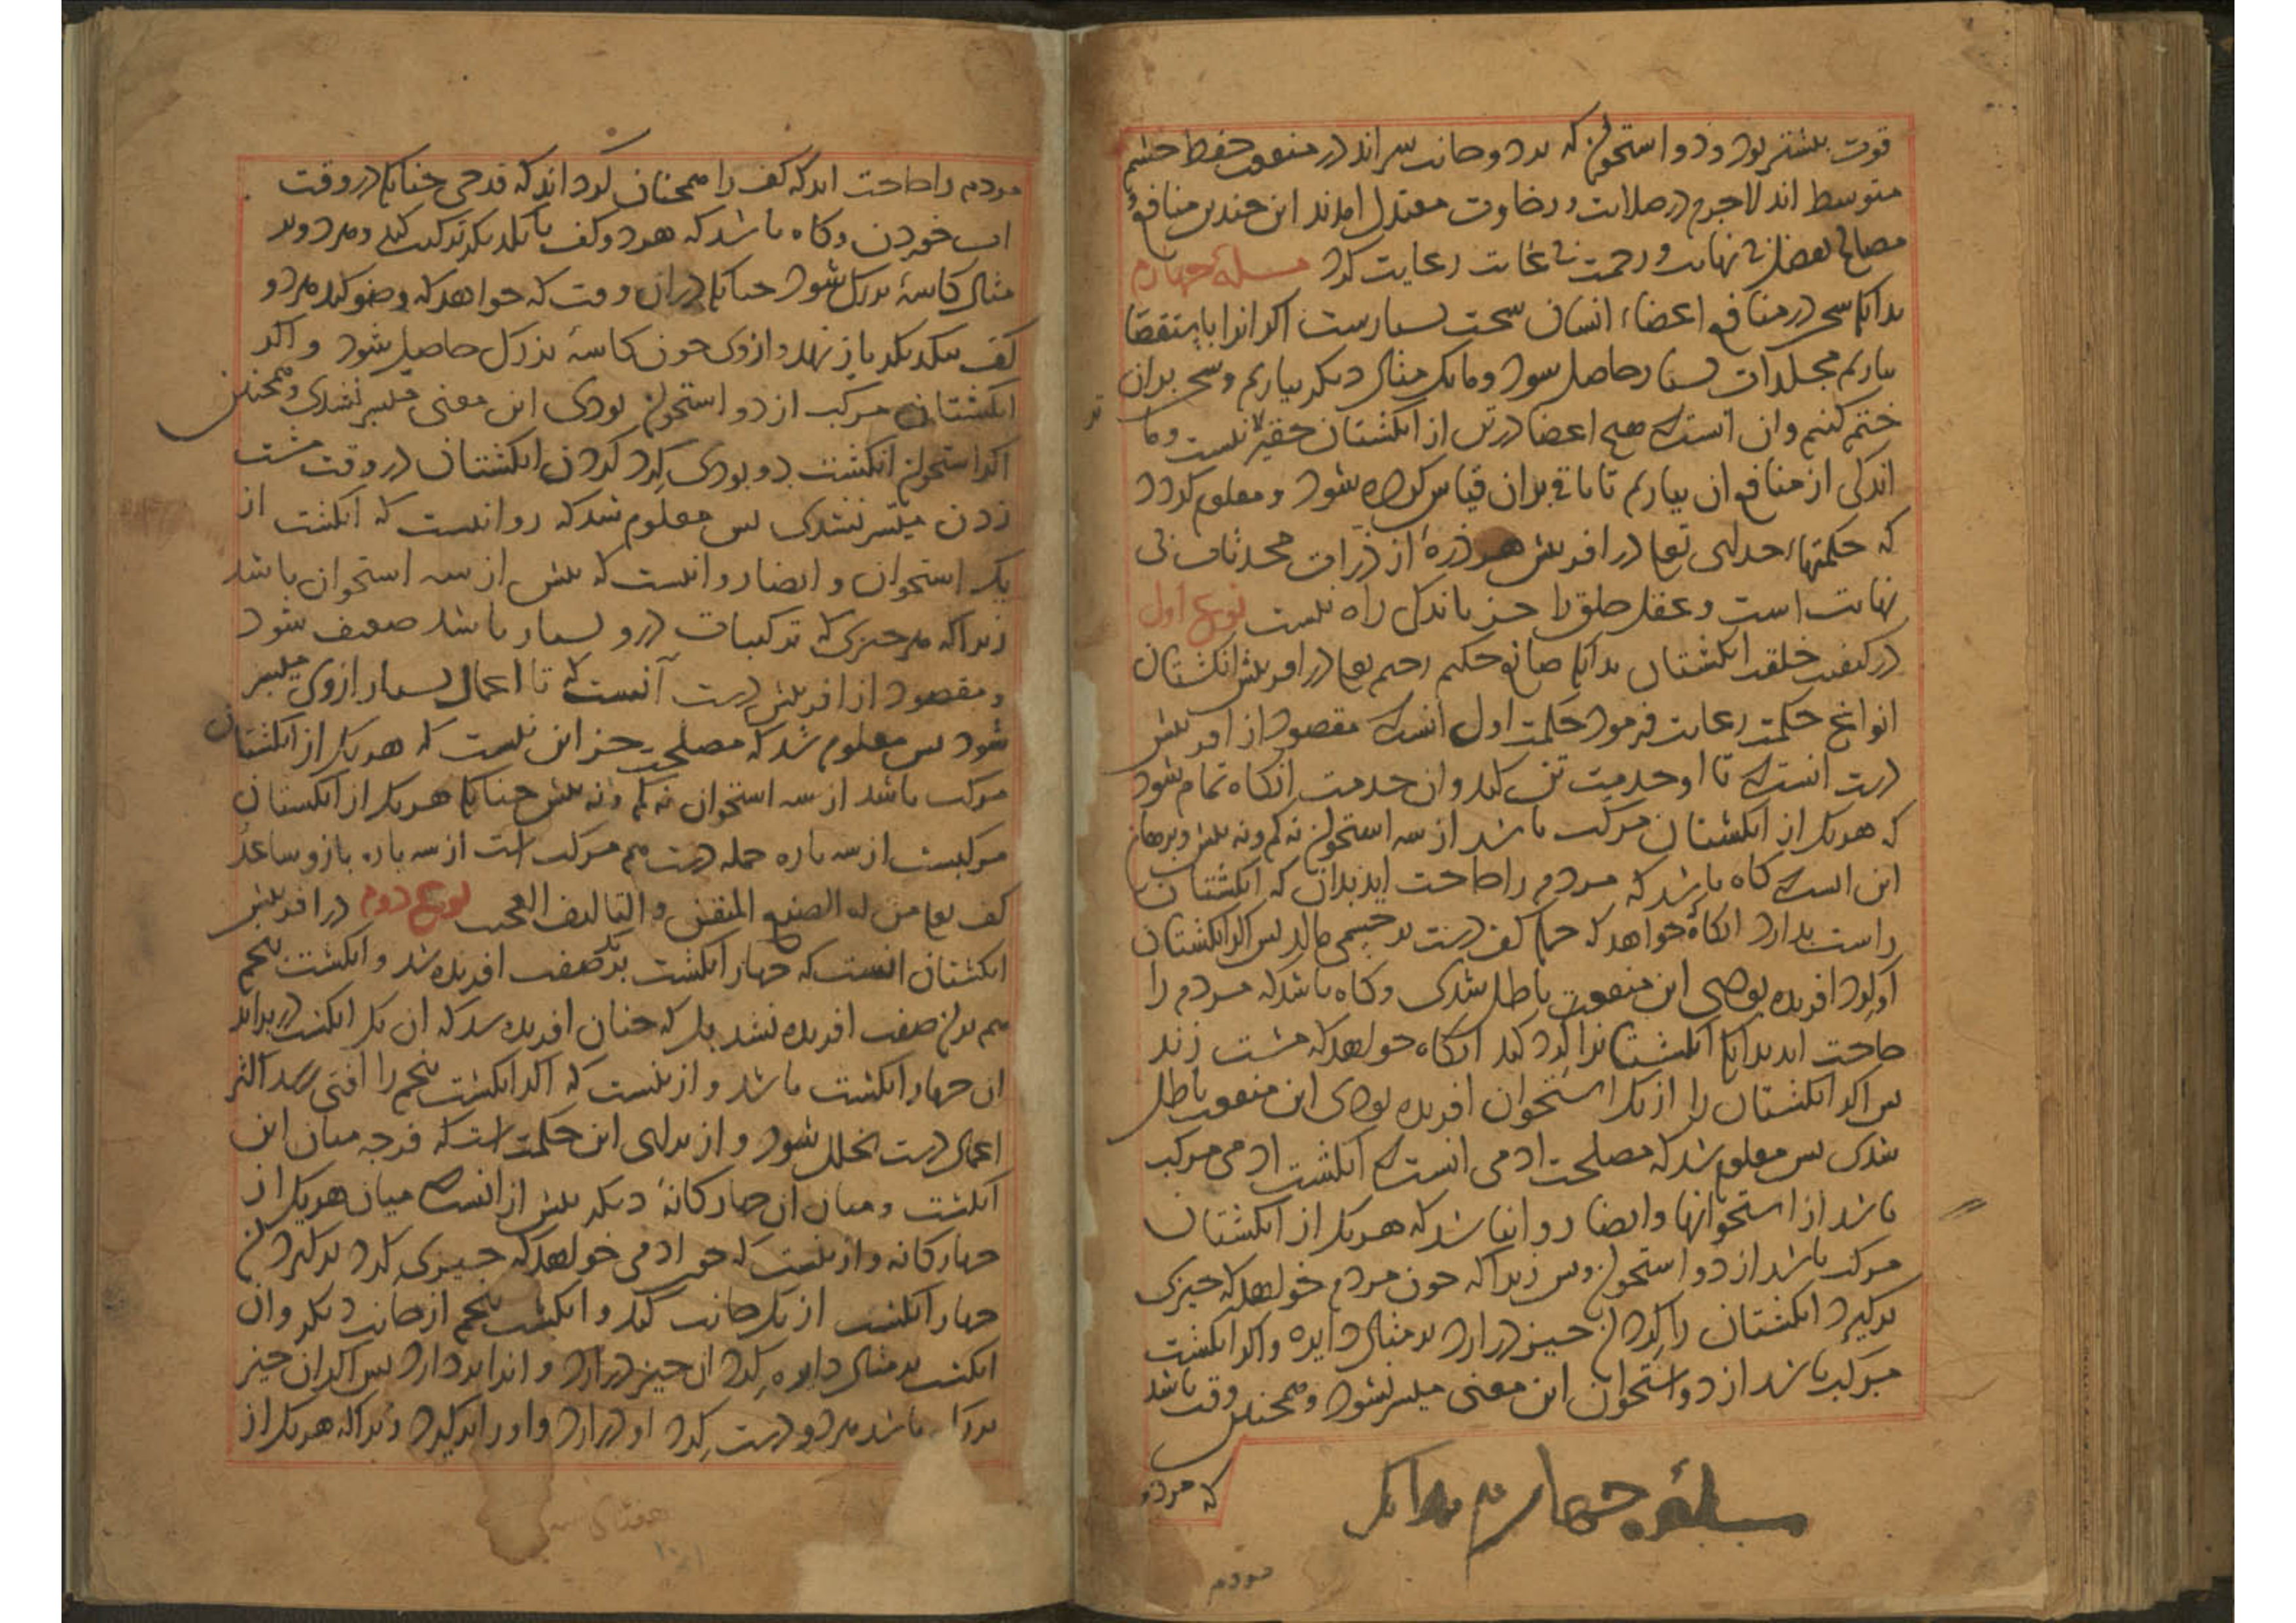 قوت بیشتر بود و دو استخوان که بر دو جانب سراند در منفعت حفظ چشم
متوسط اند لاجرم در صلابت و رخاوت معتدل امدند این چندین منافع و
مصالح بفضل بی نهایت و رحمت بی غایت رعایت کرد مسلۀ چهارم
بدانک سخن در منافع اعضاء انسان سخت بسیارست اکر انرا باستقصا
بیاریم مجلدات بسیار حاصل شود و ما یک مثال دیکر بیاریم و سخن بدان
ختم کنیم و ان انست که هیچ اعضا در تن از انکشتان حقیرتر نیست و ما
اندکی از منافع ان بیاریم تا باقی بران قیاس کرده شود و معلوم کردد
که حکمتهاء خدای تعا در افرینش هر ذرۀ از ذرات محدثات بی
نهایت است و عقل خلق را جز باندکی راه نیست نوع اول
در کیفیت خلقت انکشتان بدانک صانع حکیم رحیم تعا در افرینش انکشتان
انواع حکمت رعایت فرمود حکمت اول انست که مقصود از افرینش
دست انست که تا او خدمت تن کند و ان خدمت انکاه تمام شود
که هر یک از انکشتان مرکب باشد از سه استخوان نه کم و نه بیش و برهان
این انست که کاه باشد که مردم را حاجت اید بدان که انکشتان
راست بدارد انکاه خواهد که جمله کف دست بر جسمی مالد پس اکر انکشتان
او کرد افریده بودی این منفعت باطل شدی و کاه باشد که مردم را
حاجت اید بدانک انکشتانرا کرد کند انکاه خواهد که مشت زند
پس اکر انکشتان را از یک استخوان افریده بودی این منفعت باطل
شدی پس معلوم شد که مصلحت ادمی انست که انکشت ادمی مرکب
باشد از استخوانها و ایضا روا نباشد که هر یک از انکشتان
مرکب باشد از دو استخوان و بس زیرا که چون مردم خواهد که چیزی
بر کیرد انکشتان را کرد ان چیز در ارد بر مثال دایره و اکر انکشت
مرکب باشد از دو استخوان این معنی میسر نشود و همچنین وقت باشد
که مردم
مسلۀ چهارم بدانک
مردم
مردم را حاجت اید که کف را همچنان کرداند که قدحی چنانک در وقت
اب خوردن و کاه باشد که هر دو کف با یکدیکر ترکیب کند و هر دو بر
مثال کاسۀ بزرک شود چنانک در ان وقت که خواهد که وضو کند هر دو
کف بیکدیکر باز نهد و ازوی چون کاسۀ بزرک حاصل شود و اکر
انکشتان مرکب از دو استخوان بودی این معنی میسر نشدی و همچنین
اکر استخوان انکشت دو بودی کرد کردن انکشتان در وقت مشت
زدن میسر نشدی پس معلوم شد که روا نیست که انکشت از
یک استخوان و ایضا روا نیست که بیش از سه استخوان باشد
زیرا که هر چیزی که ترکیبات درو بسیار باشد ضعیف شود
و مقصود از افرینش دست آنست که تا اعمال بسیار ازوی میسر
شود پس معلوم شد که مصلحت جز این نیست که هر یک از انکشتان
مرکب باشد از سه استخوان نه کم و نه بیش چنانک هر یک از انکشتان
مرکبست از سه پاره جمله دست هم مرکب است از سه پاره بازو و ساعد
کف تعا من له الصنع المتقن و التالیف العجیب نوع دوم در افرینش
انکشتان انست که چهار انکشت بر یک صفت افریده شد و انکشت پنجم
هم بران صفت افریده نشد بلکه چنان افریده شد که ان یک انکشت در برابر
ان چهار انکشت باشد و ازینست که اکر انکشت پنجم را افتی رسد اکثر
اعمال دست بخلل شود و از برای این حکمت است که فرجه میان این
انکشت و میان ان چهارکانۀ دیکر بیش از انست که میان هر یک از
چهارکانه و ازینست که چون ادمی خواهد که چیزی کرد بر کیرد ان
چهار انکشت از یک جانب کند و انکشت پنجم از جانب دیکر و ان
انکشت بر مثال دایره کرد ان چیز در ارد و انرا بردارد پس اکر ان چیز
بزرک باشد هر دو دست کرد او در ارد و اورا برکیرد زیرا که هر یک از
هفتاد